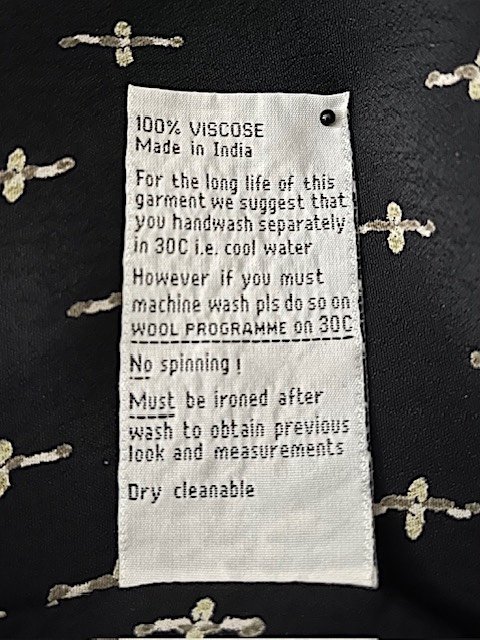 100% VISCOSE
Made in India
For the long life of this
garment we suggest that
you handwash separately
in 30C i.e. cool water
However if you must
machine wash pls do so on
WOOL PROGRAMME on 30C
No spinning !
Must be ironed after
wash to obtain previous
look and measurements
Dry cleanable